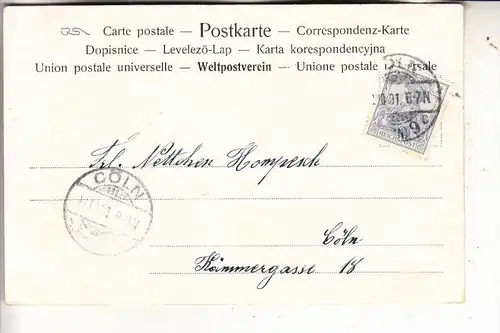 Carte postale — Postkarte — Correspondenz-Karte
Dopisnice — Levelezö-Lap — Karta korespondencyjna
Union postale universelle — Weltpostverein — Unione postale universale
.01. 6-7N
9c
REICHSPOST
Frl. Nettchen Hompesch
CÖLN
Cöln
Kämmergasse 18